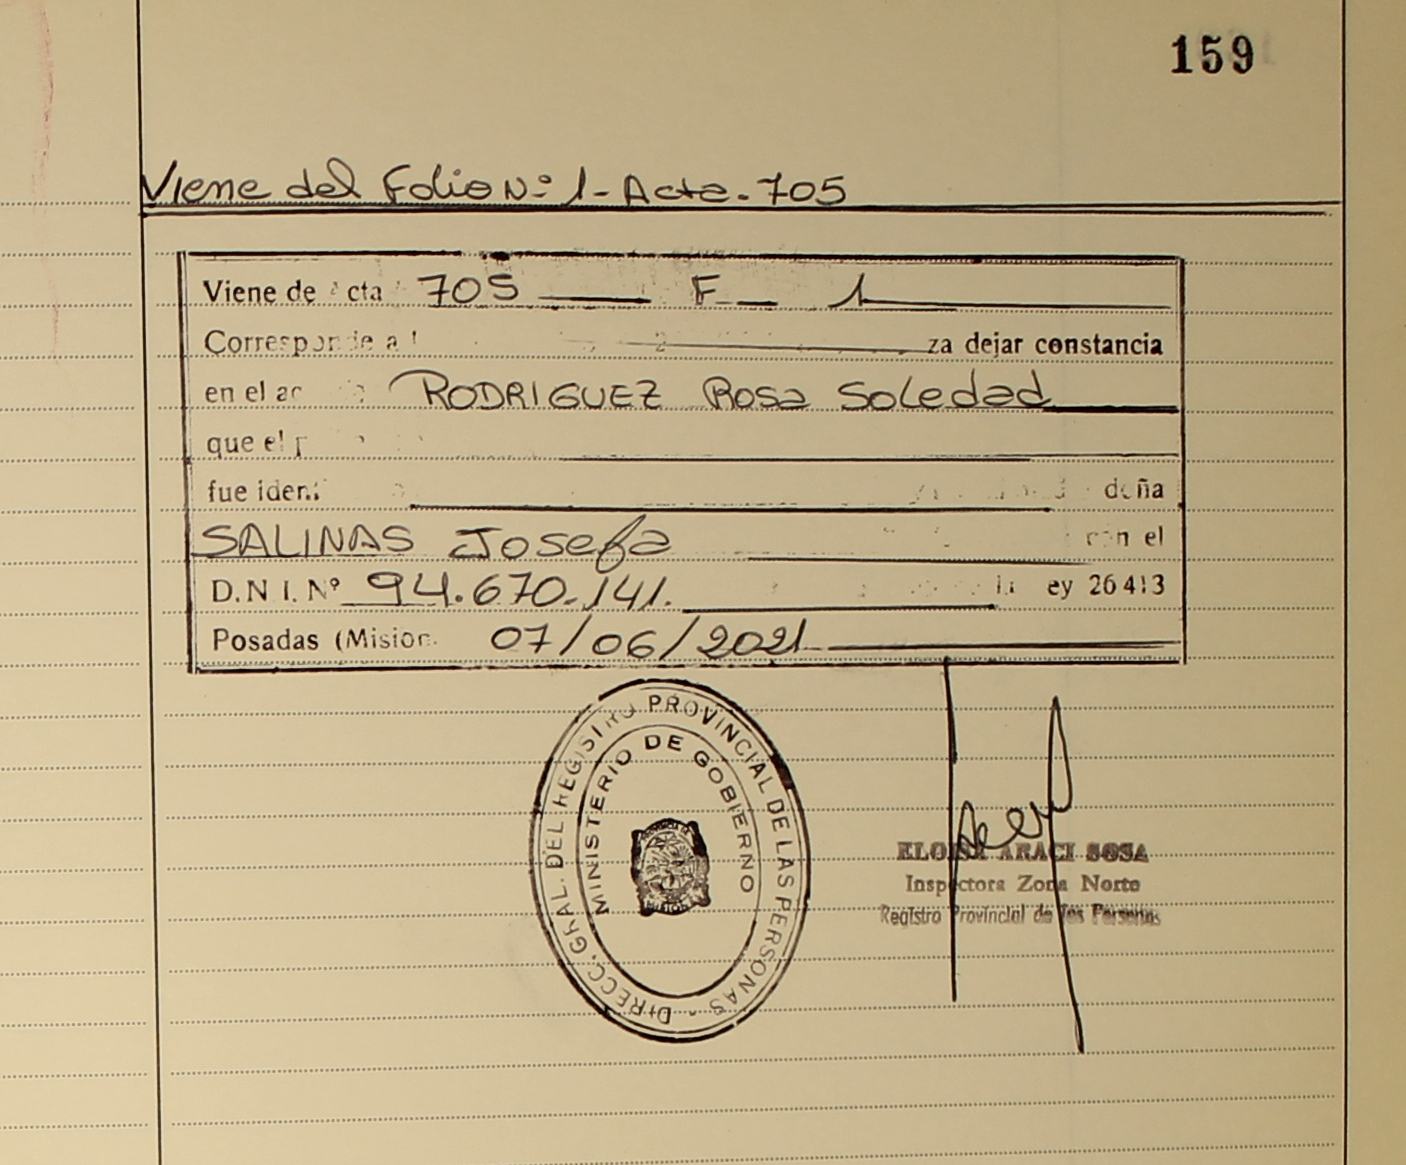 159
Viene del Folio Nº 1- Acta. 705
Viene de cta 705 F 1
Corresponde a za dejar constancia
en el RODRIGUEZ Rosa Soledad
que el
fue doña
SALINAS Josefa con el
D.N I. Nº 94.670.141. ey 26413
Posadas (Mision 07/06/2021
DIRECC. GRAL. DEL REGISTRO PROVINCIAL DE LAS PERSONAS -
MINISTERIO DE GOBIERNO
ELOISA ARACI SOSA
Inspectora Zona Norte
Registro Provincial de las Personas